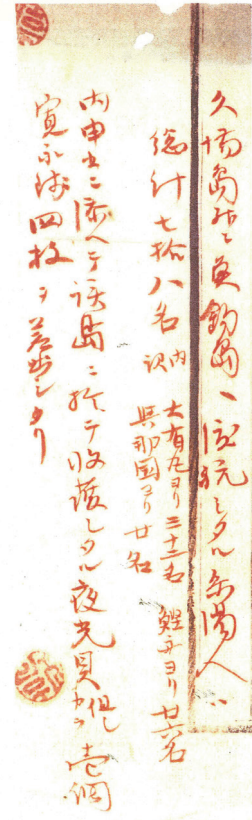 久場島并ニ魚釣島ヘ渡航シタル糸満人ハ
総計七拾八名
内訳
大有丸ヨリ三十二名 鰹舟ヨリ廿六名
與那国ヨリ廿名
内申書ニ添ヘテ該島ニ於テ收獲シタル夜光貝 壱個
寛永銭四枚ヲ差出シタリ